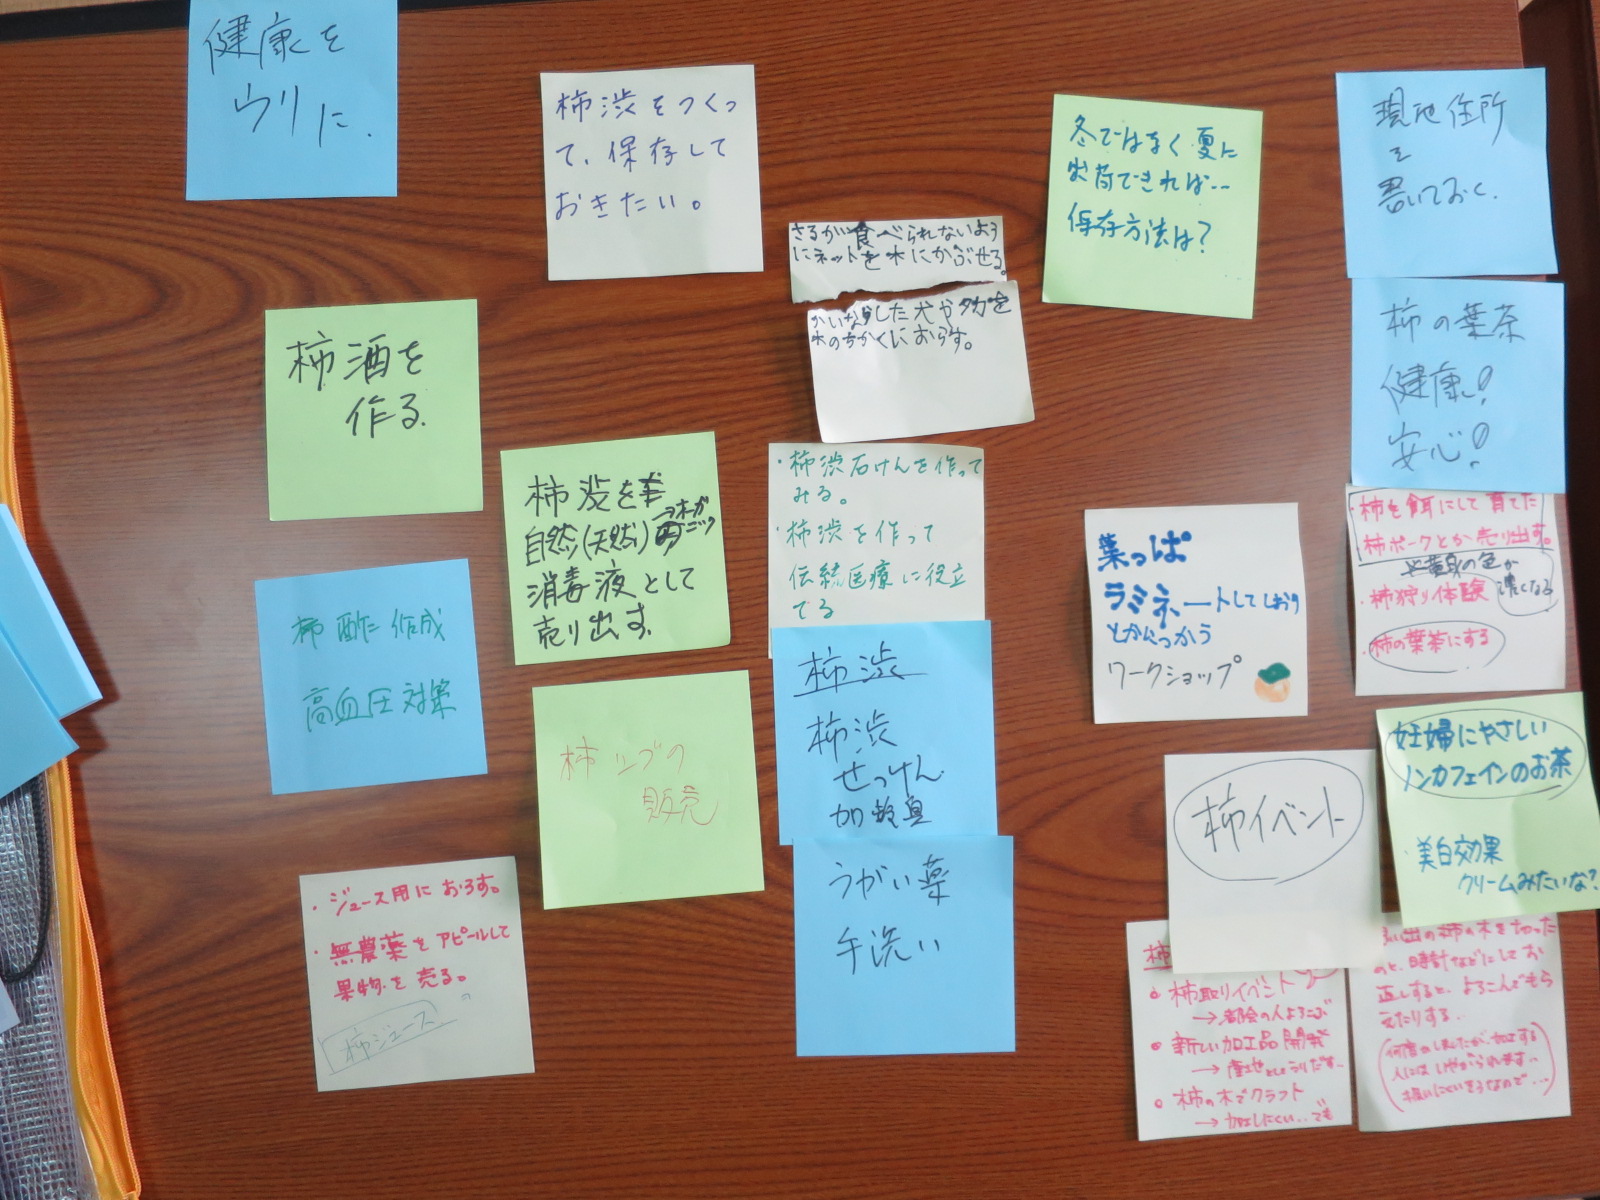 健康を
ウリに.
柿渋をつくっ
て、保存して
おきたい。
さるが食べられないよう
にネットを木にかぶせる。
かいならした犬やタカを
木のちかくにおらす。
冬ではなく夏に
出荷できれば…
保存方法は？
現地住所
を
書いておく.
柿の葉茶
健康！
安心！
柿酒を
作る.
柿渋を
自然(天然)オーガニック
消毒液として
売り出す.
・柿渋石けんを作って
みる。
・柿渋を作って
伝統医療に役立
てる
葉っぱ
ラミネートしてしおり
とかにつかう
ワークショップ
・柿を餌にして育てた
柿ポークとか売り出す。
黄身の色が
濃くなる
・柿狩り体験
・柿の葉茶にする
柿酢作成
高血圧対策
柿渋
柿渋
せっけん
加齢臭
柿リブの
販売
妊婦にやさしい
ノンカフェインのお茶
・美白効果
クリームみたいな？
柿イベント
うがい薬
手洗い
・ジュース用におろす。
・無農薬をアピールして
果物を売る。
柿ジュース
柿取りイベント
→都会の人よろこぶ
新しい加工品開発
→産地としてうりだす…
柿の木でクラフト
→加工しにくい…でも
い出の柿の木を切った
のと、時計などにしてお
直しすると、よろこんでもら
えたりする…
(何度かしましたが、加工する
人にはいやがられます…
扱いにくいそうなので…)